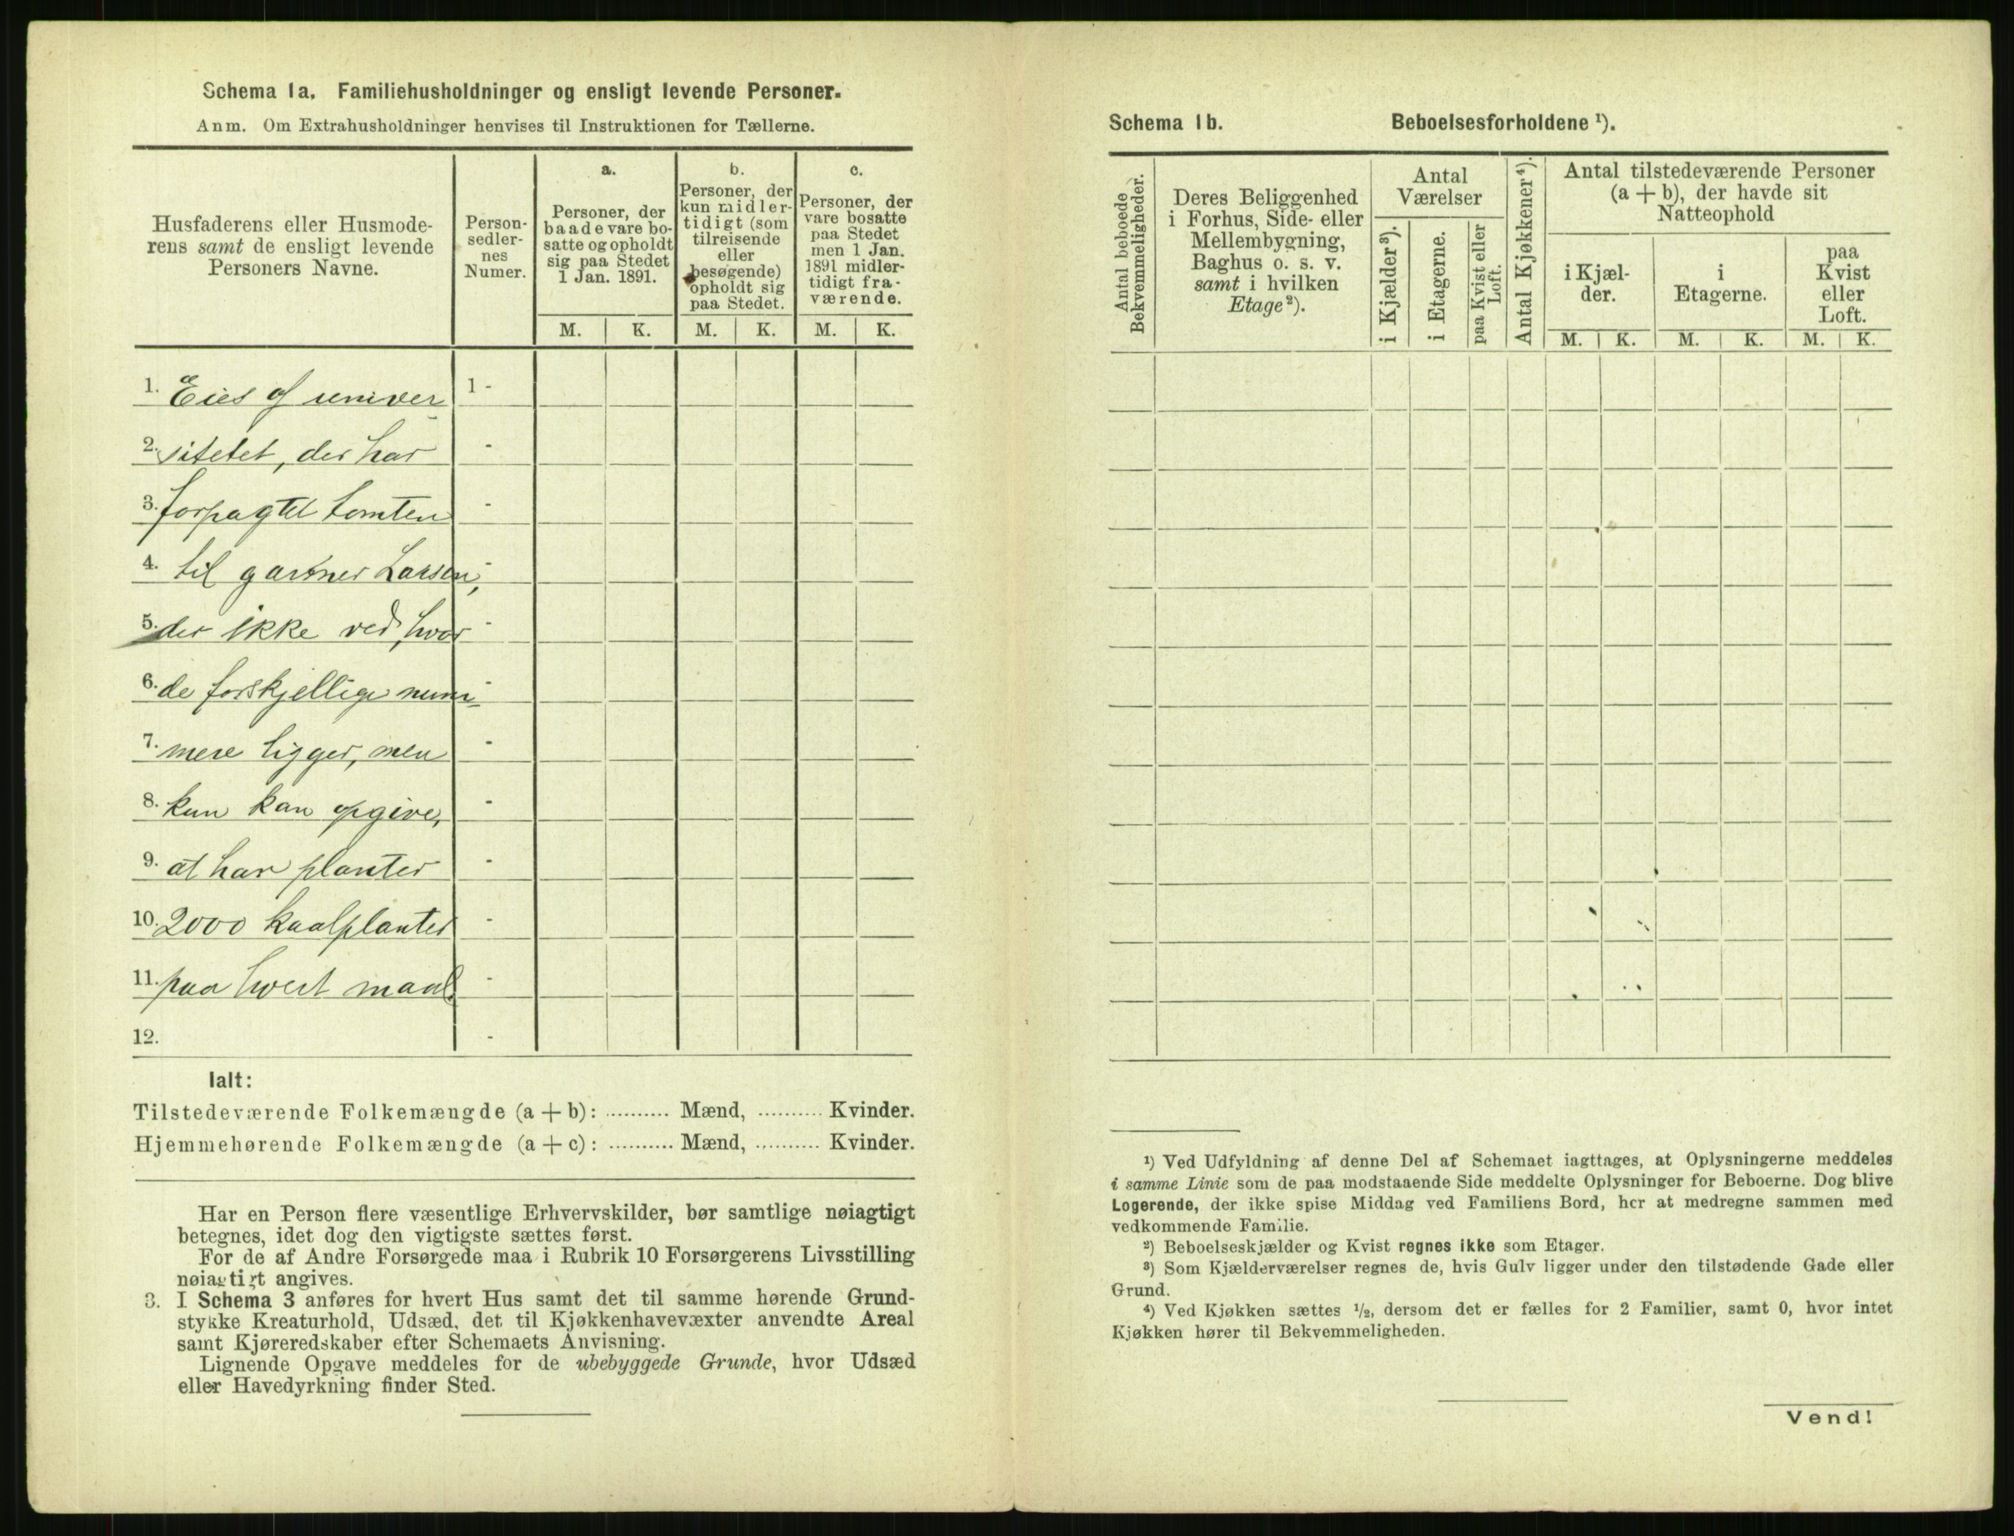 Schema 1a. Familiehusholdninger og ensligt levende Personer.
Anm. Om Extrahusholdninger henvises til Instruktionen for Tællerne.
Husfaderens eller Husmode-
rens samt de ensligt levende
Personers Navne.
Person-
sedler-
nes
Numer.
a.
Personer, der
baade vare bo-
satte og opholdt
sig paa Stedet
1 Jan. 1891.
b.
Personer, der
kun midler-
tidigt (som
tilreisende
eller
besøgende)
opholdt sig
paa Stedet.
c.
Personer, der
vare bosatte
paa Stedet
men 1 Jan.
1891 midler-
tidigt fra-
værende.
M. K. M. K. M. K.
1. Eies af univer 1 -
2. sitetet, der har -
3. forpagtet tomten -
4. til gartner Larsen, -
5. der ikke ved, hvor -
6. de forskjellige num- -
7. mere ligger, men -
8. kun kan opgive, -
9. at han planter -
10. 2000 kaalplanter -
11. paa hvert maal. -
12. -
Ialt:
Tilstedeværende Folkemængde (a + b): .......... Mænd, .......... Kvinder.
Hjemmehørende Folkemængde (a + c): .......... Mænd, .......... Kvinder.
Har en Person flere væsentlige Erhvervskilder, bør samtlige nøiagtigt
betegnes, idet dog den vigtigste sættes først.
For de af Andre Forsørgede maa i Rubrik 10 Forsørgerens Livsstilling
nøiagtigt angives.
3. I Schema 3 anføres for hvert Hus samt det til samme hørende Grund-
stykke Kreaturhold, Udsæd, det til Kjøkkenhavevæxter anvendte Areal
samt Kjøreredskaber efter Schemaets Anvisning.
Lignende Opgave meddeles for de ubebyggede Grunde, hvor Udsæd
eller Havedyrkning finder Sted.
Schema 1b. Beboelsesforholdene ¹).
Antal beboede
Bekvemmeligheder.
Deres Beliggenhed
i Forhus, Side- eller
Mellembygning,
Baghus o. s. v.
samt i hvilken
Etage²).
Antal
Værelser
i Kjælder³).
i Etagerne.
paa Kvist eller
Loft.
Antal Kjøkkener⁴).
Antal tilstedeværende Personer
(a + b), der havde sit
Natteophold
i Kjæl-
der.
i
Etagerne.
paa
Kvist
eller
Loft.
M. K. M. K. M. K.
¹) Ved Udfyldning af denne Del af Schemaet iagttages, at Oplysningerne meddeles
i samme Linie som de paa modstaaende Side meddelte Oplysninger for Beboerne. Dog blive
Logerende, der ikke spise Middag ved Familiens Bord, her at medregne sammen med
vedkommende Familie.
²) Beboelseskjælder og Kvist regnes ikke som Etager.
³) Som Kjælderværelser regnes de, hvis Gulv ligger under den tilstødende Gade eller
Grund.
⁴) Ved Kjøkken sættes ½, dersom det er fælles for 2 Familier, samt 0, hvor intet
Kjøkken hører til Bekvemmeligheden.
Vend!